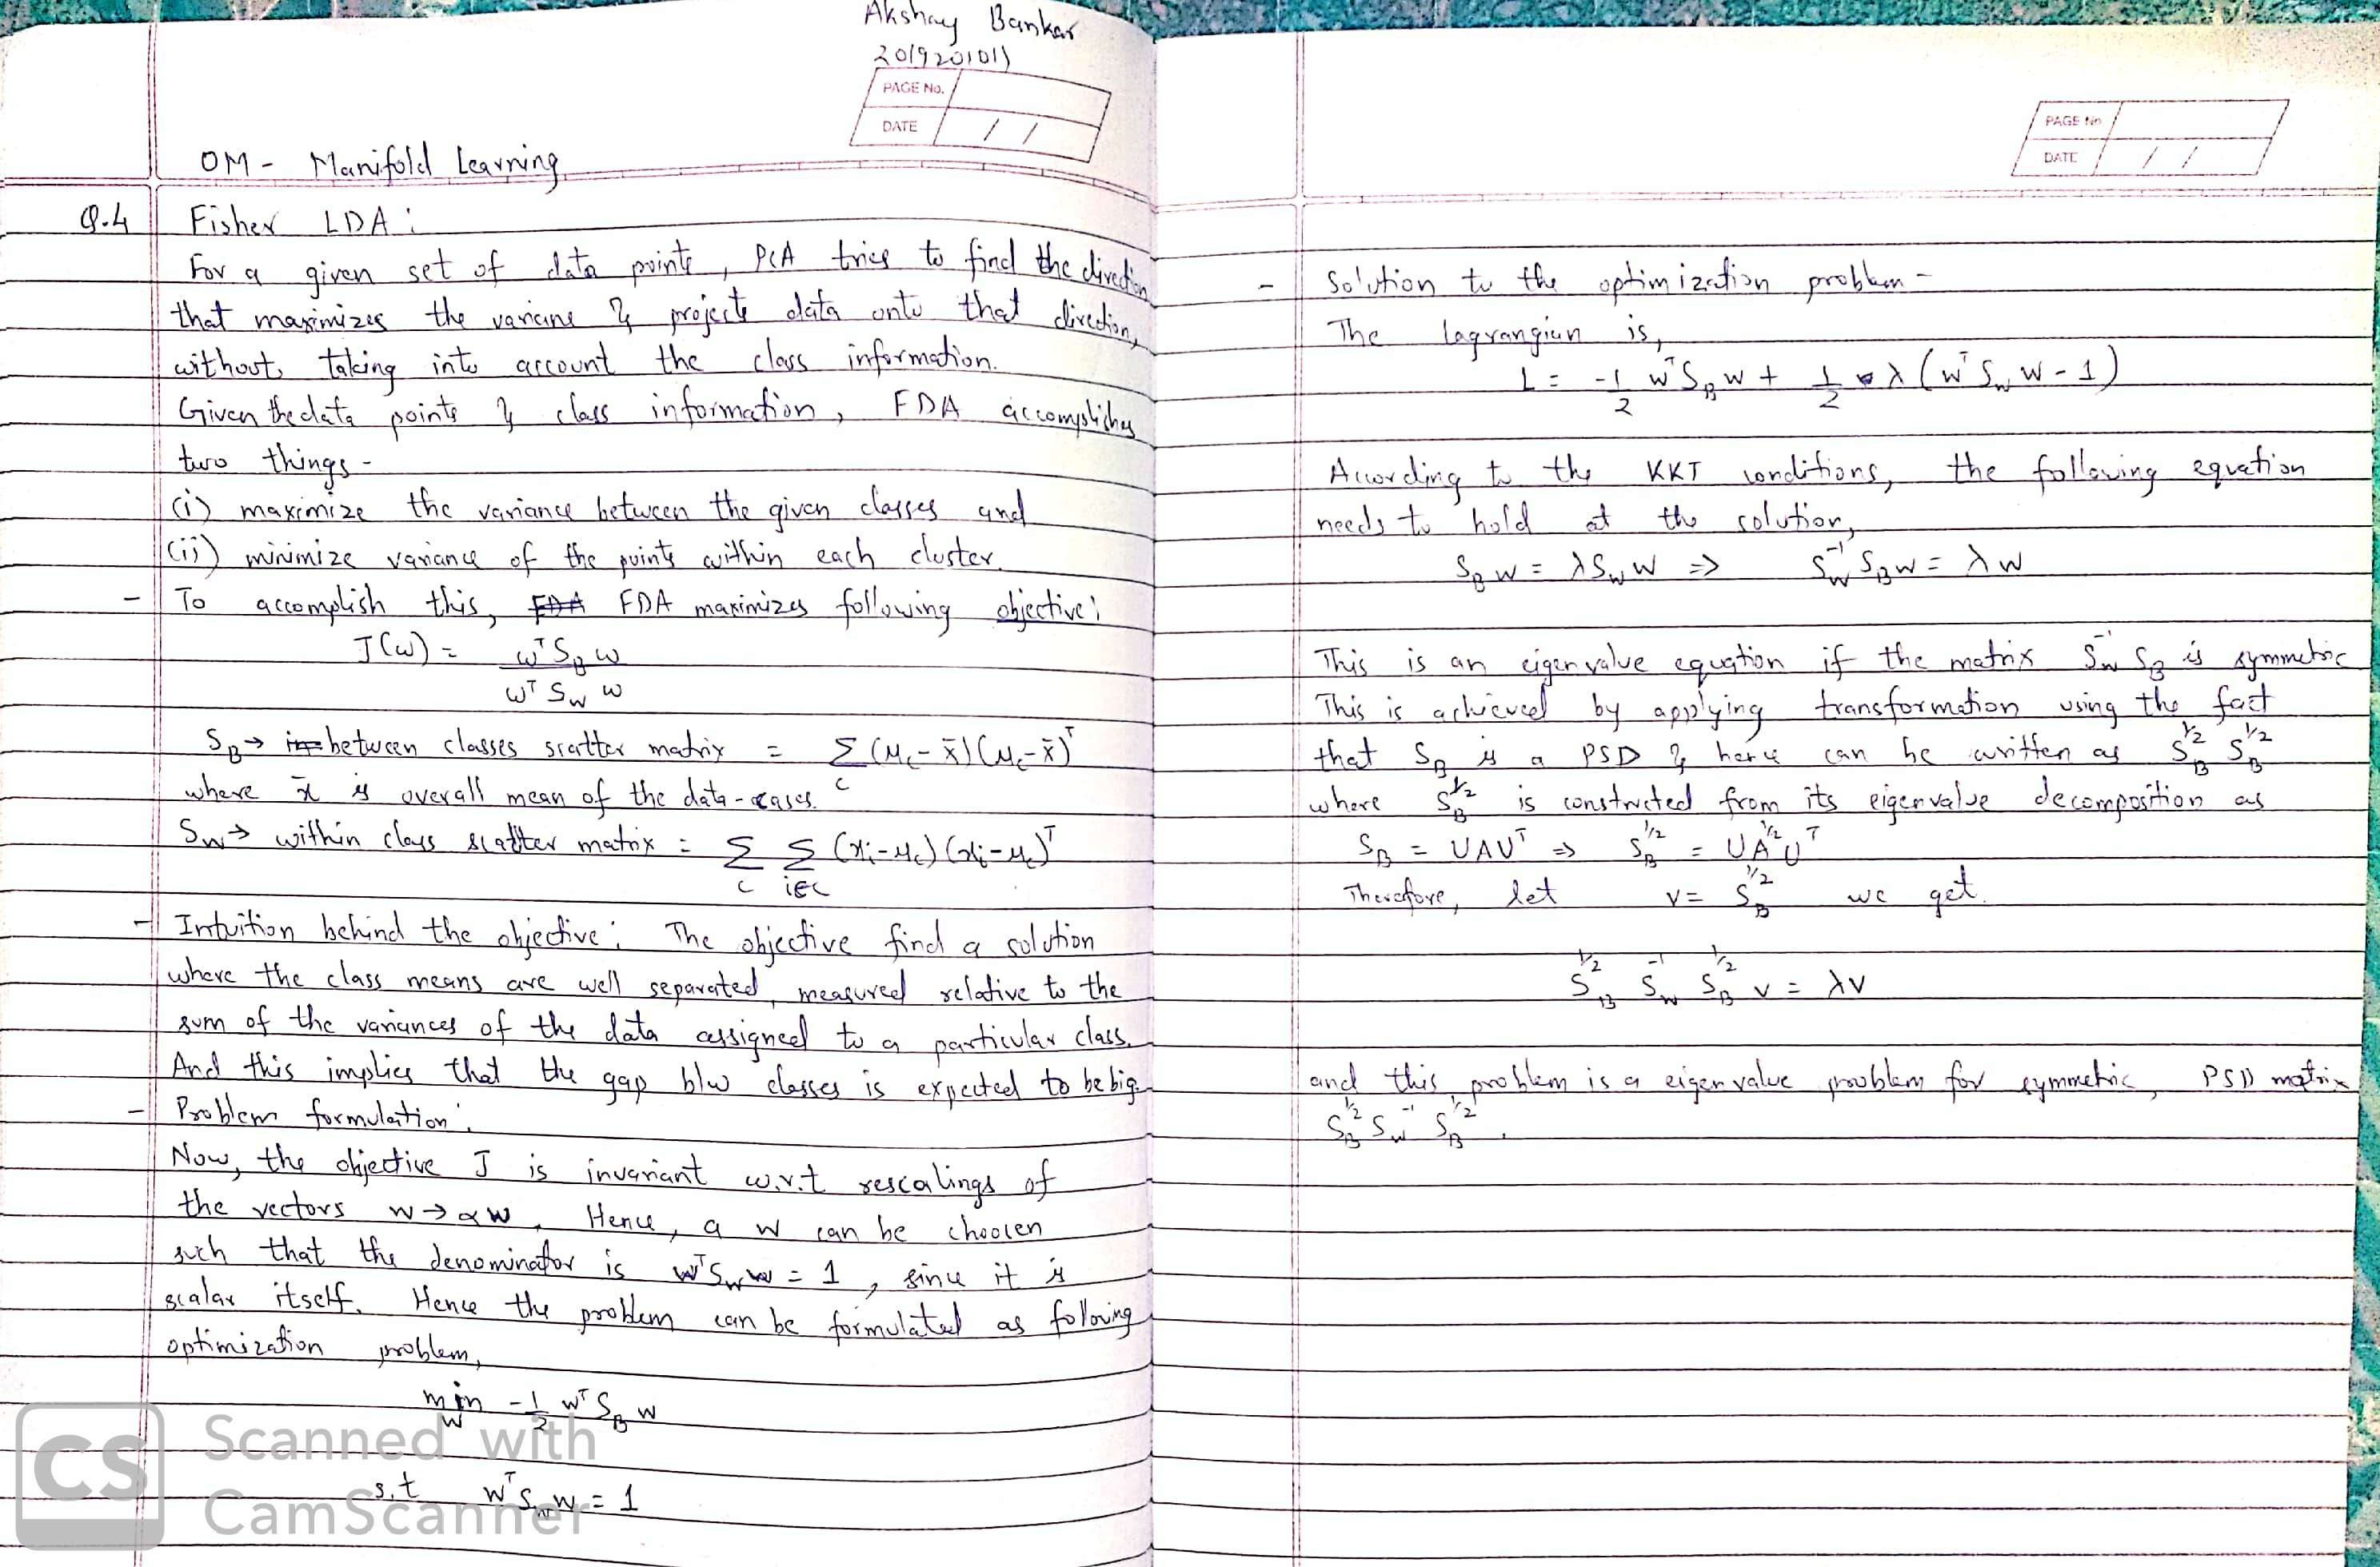 Akshay Bankar
2019201011
PAGE No.
DATE / /
OM - Manifold Learning
Q.4 Fisher LDA :
For a given set of data points, PCA tries to find the direction
that maximizes the variance & projects data onto that direction,
without taking into account the class information.
Given the data points & class information, FDA accomplishes
two things -
(i) maximize the variance between the given classes and
(ii) minimize variance of the points within each cluster.
- To accomplish this, FDA FDA maximizes following objective :
J(w) = wᵀ S_B w / wᵀ S_w w
S_B → between classes scatter matrix = Σ_c (μ_c - x̄)(μ_c - x̄)ᵀ
where x̄ is overall mean of the data-cases.
S_w → within class scatter matrix = Σ_c Σ_{i∈c} (x_i - μ_c)(x_i - μ_c)ᵀ
- Intuition behind the objective : The objective find a solution
where the class means are well separated, measured relative to the
sum of the variances of the data assigned to a particular class.
And this implies that the gap b/w classes is expected to be big.
- Problem formulation :
Now, the objective J is invariant w.r.t rescalings of
the vectors w → αw. Hence, a w can be choosen
such that the denominator is wᵀ S_w w = 1, since it is
scalar itself. Hence the problem can be formulated as following
optimization problem,
min_w -1/2 wᵀ S_B w
s.t wᵀ S_w w = 1
CS Scanned with
CamScanner
PAGE No
DATE / /
- Solution to the optimization problem -
The lagrangian is,
L = -1/2 wᵀ S_B w + 1/2 λ (wᵀ S_w w - 1)
According to the KKT conditions, the following equation
needs to hold at the solution,
S_B w = λ S_w w => S_w⁻¹ S_B w = λ w
This is an eigen value equation if the matrix S_w⁻¹ S_B is symmetric
This is achieved by applying transformation using the fact
that S_B is a PSD & hence can be written as S_B^½ S_B^½
where S_B^½ is constructed from its eigenvalue decomposition as
S_B = UΛUᵀ => S_B^½ = UΛ^½Uᵀ
Therefore, let v = S_B^½ we get.
S_B^½ S_w⁻¹ S_B^½ v = λv
and this problem is a eigen value problem for symmetric, PSD matrix
S_B^½ S_w⁻¹ S_B^½.